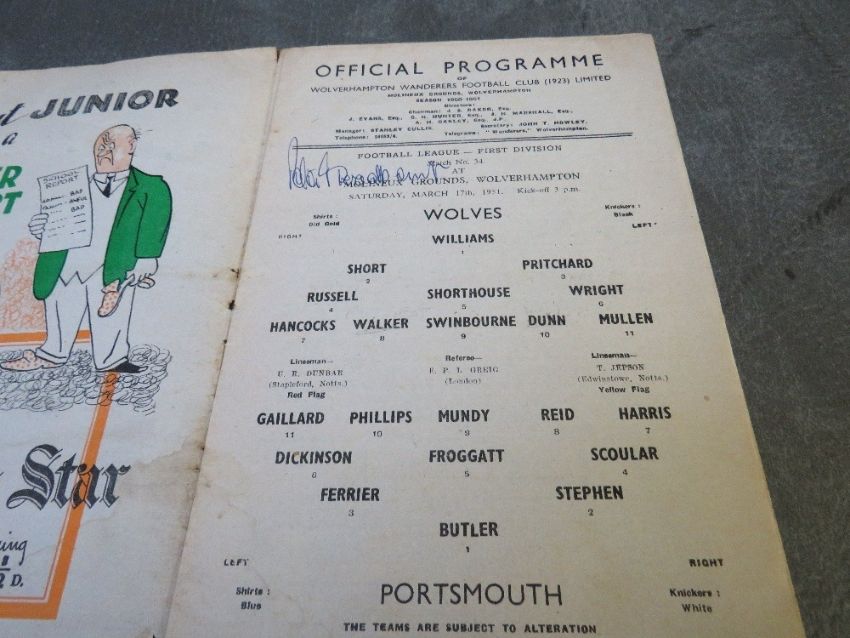 JUNIOR
a
SCHOOL
REPORT
BAD
AWFUL
BAD
Star
D.
OFFICIAL PROGRAMME
OF
WOLVERHAMPTON WANDERERS FOOTBALL CLUB (1923) LIMITED
MOLINEUX GROUNDS, WOLVERHAMPTON
SEASON 1950-1951
Directors:
Chairman: J. S. BAKER, Esq.
J. EVANS, Esq., G. H. HUNTER, Esq., J. H. MARSHALL, Esq.,
A. H. OAKLEY, Esq., J.P.
Manager: STANLEY CULLIS. Secretary: JOHN T. HOWLEY.
Telephone: Telegrams: "Wanderers," Wolverhampton.
FOOTBALL LEAGUE — FIRST DIVISION
Match No. 34
AT
MOLINEUX GROUNDS, WOLVERHAMPTON
SATURDAY, MARCH 17th, 1951. Kick-off 3 p.m.
Shirts: Old Gold
WOLVES
Knickers: Black
RIGHT LEFT
WILLIAMS
1
SHORT PRITCHARD
2 3
RUSSELL SHORTHOUSE WRIGHT
4 5 6
HANCOCKS WALKER SWINBOURNE DUNN MULLEN
7 8 9 10 11
Linesman— Referee— Linesman—
U. R. DUNBAR F. P. L. GREIG T. JEPSON
(Stapleford, Notts.) (London) (Edwinstowe, Notts.)
Red Flag Yellow Flag
GAILLARD PHILLIPS MUNDY REID HARRIS
11 10 9 8 7
DICKINSON FROGGATT SCOULAR
6 5 4
FERRIER STEPHEN
3 2
BUTLER
1
LEFT RIGHT
Shirts: Blue
PORTSMOUTH
Knickers: White
THE TEAMS ARE SUBJECT TO ALTERATION